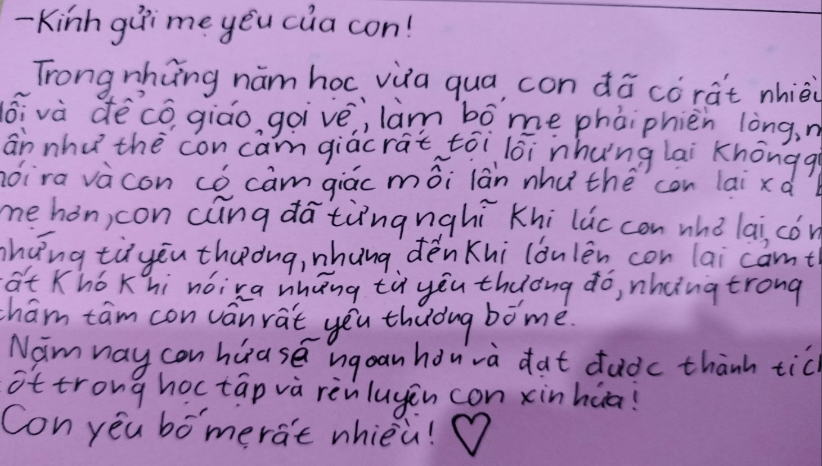 -Kính gửi mẹ yêu của con!
Trong những năm học vừa qua, con đã có rất nhiều
lỗi và để cô giáo gọi về, làm bố mẹ phải phiền lòng,
như thế con cảm giác rất tội lỗi nhưng lại không
nói ra và con có cảm giác mỗi lần như thế con lại xa
mẹ hơn, con cũng đã từng nghĩ khi lúc con nhỏ lại có
những từ yêu thương, nhưng đến khi lớn lên con lại cảm
rất khó khi nói ra những từ yêu thương đó, nhưng trong
thâm tâm con vẫn rất yêu thương bố mẹ.
Năm nay con hứa sẽ ngoan hơn và đạt được thành
tốt trong học tập và rèn luyện con xin hứa!
Con yêu bố mẹ rất nhiều! ♡